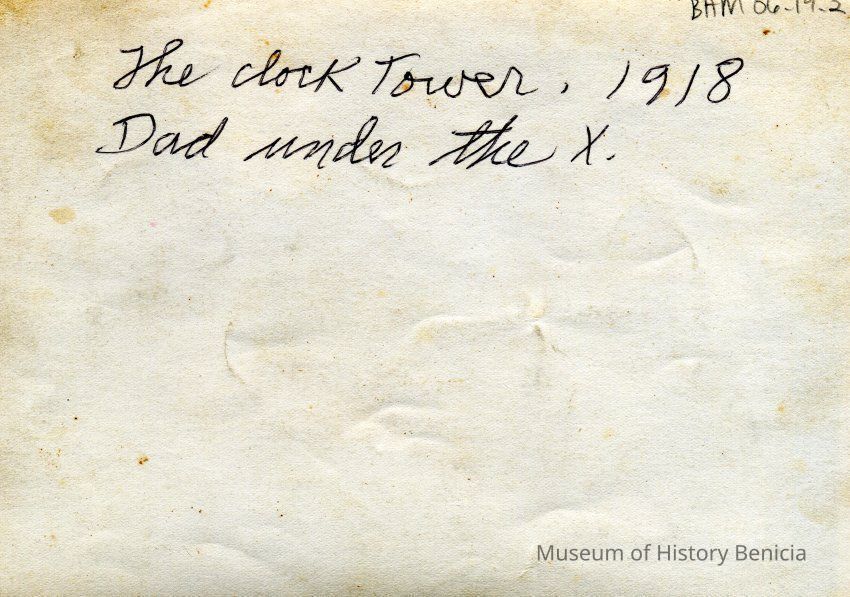 BHM 06-19-2
The clock Tower, 1918
Dad under the X.
Museum of History Benicia